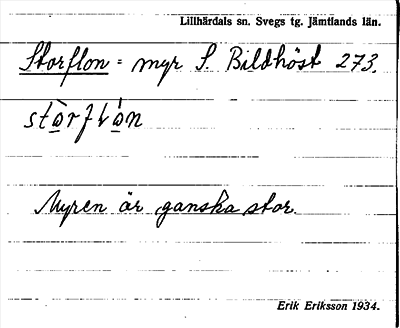 Lillhärdals sn. Svegs tg. Jämtlands län.
Storflon = myr S. Bildhöst 273.
stòrflón
Myren är ganska stor.
Erik Eriksson 1934.